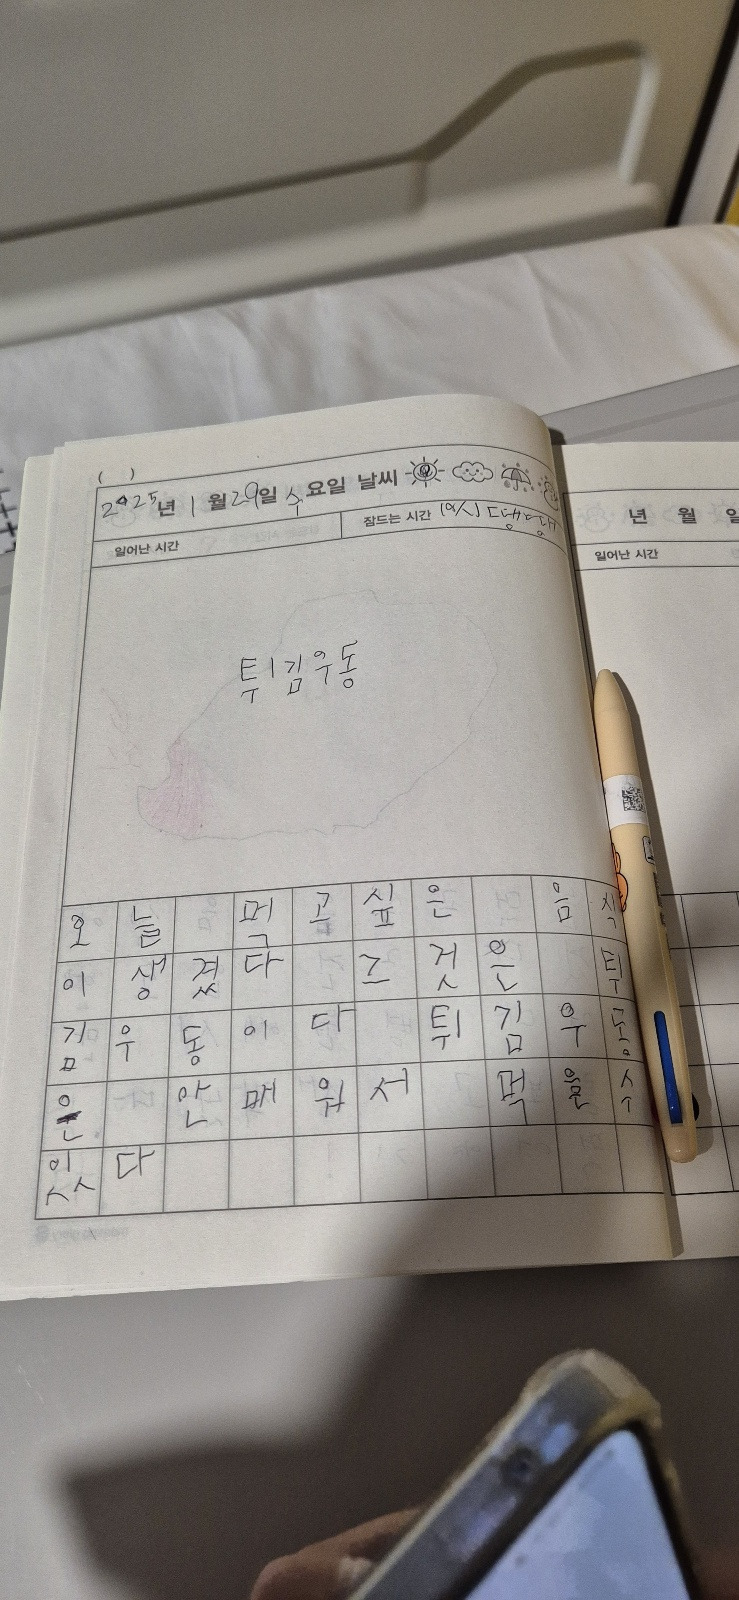 ( )
2025년 1월 29일 수요일 날씨
일어난 시간
잠드는 시간 10시 땡땡
튀김우동
오늘 먹고 싶은 음식
이 생겼다 그것은 튀
김우동이다 튀김우동
은 안매워서 먹을수
있다
년 월 일
일어난 시간